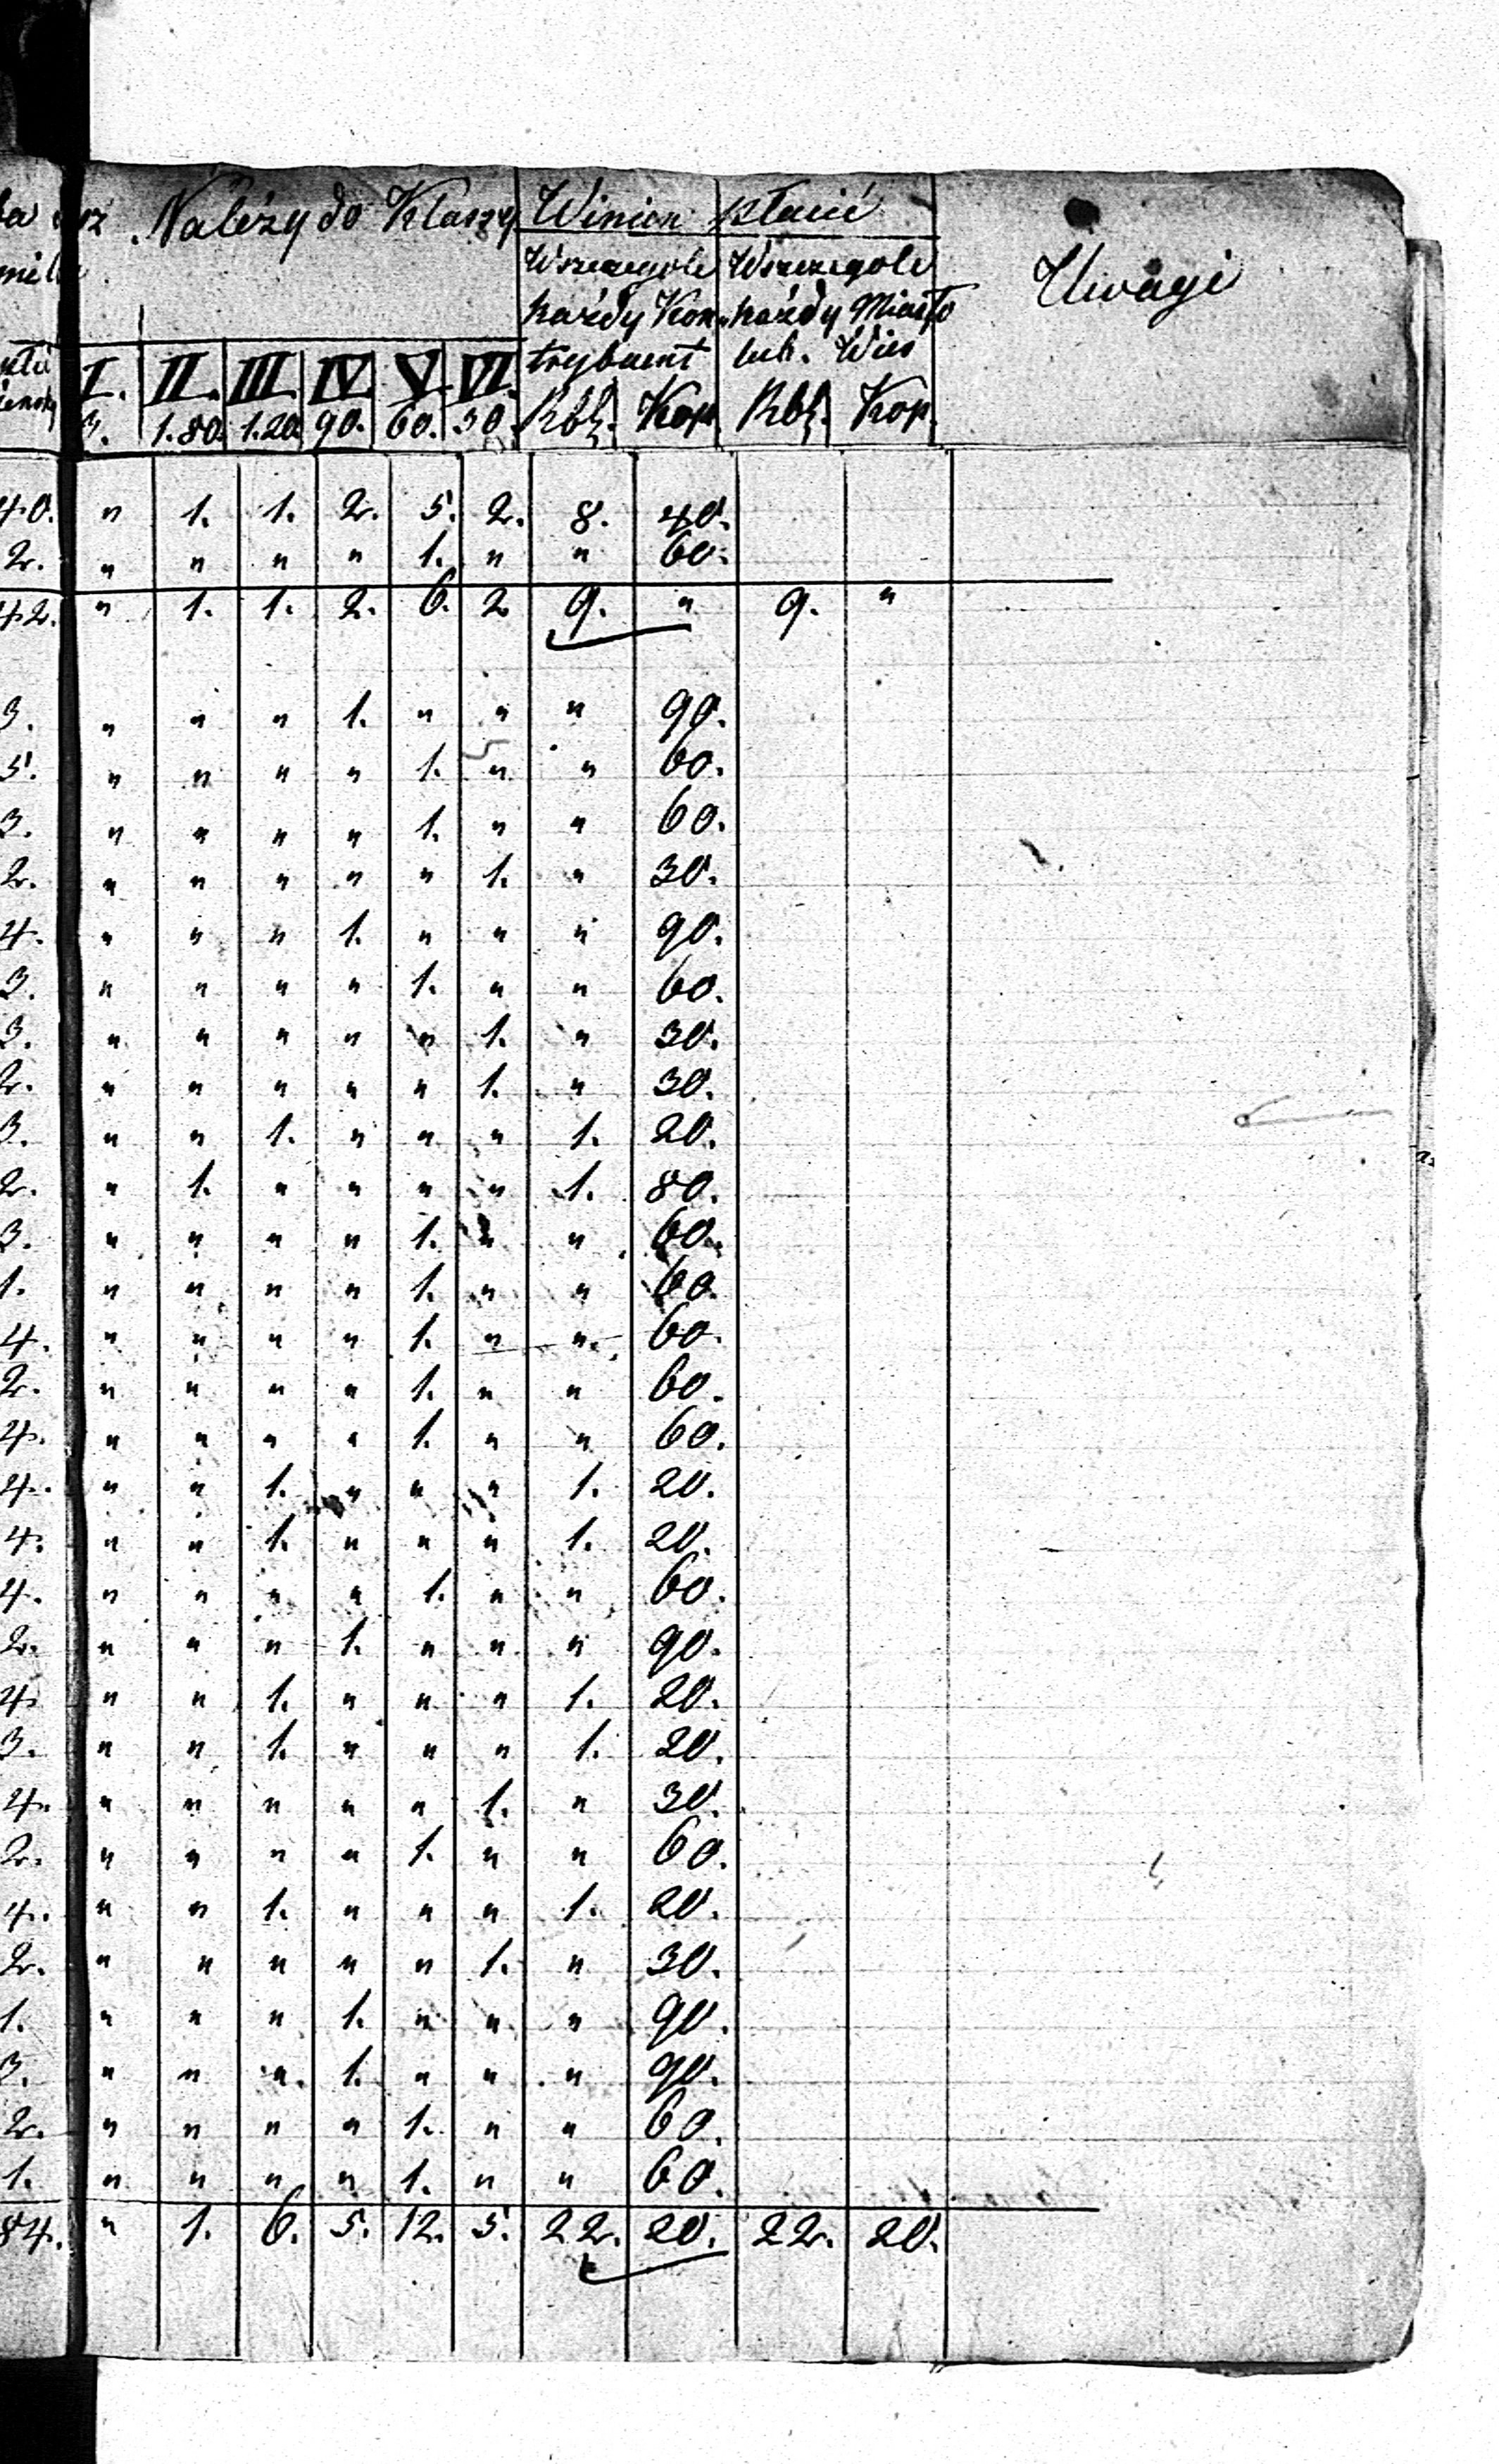 Należy do Klassy Winien płacić
Wszczegole Wszczegole Uwagi
każdy Kon- każdy Miasto
I. II. III. IV. V. VI. trybuent lub. Wieś
3. 1.80. 1.20. 90. 60. 30. Rbl. Kop. Rbl. Kop.
40. " 1. 1. 2. 5. 2. 8. 40.
2. " " " " 1. " " 60.
42. " 1. 1. 2. 6. 2 9. " 9. "
3. " " " 1. " " " 90.
5. " " " " 1. " " 60.
3. " " " " 1. " " 60.
2. " " " " " 1. " 30.
4. " " " 1. " " " 90.
3. " " " " 1. " " 60.
3. " " " " " 1. " 30.
2. " " " " " 1. " 30.
3. " " 1. " " " 1. 20.
2. " 1. " " " " 1. 80.
3. " " " " 1. " " 60.
1. " " " " 1. " " 60.
4. " " " " 1. " " 60.
2. " " " " 1. " " 60.
4. " " " " 1. " " 60.
4. " " 1. " " " 1. 20.
4. " " 1. " " " 1. 20.
4. " " " " 1. " " 60.
2. " " " 1. " " " 90.
4. " " 1. " " " 1. 20.
3. " " 1. " " " 1. 20.
4. " " " " " 1. " 30.
2. " " " " 1. " " 60.
4. " " 1. " " " 1. 20.
2. " " " " " 1. " 30.
1. " " " 1. " " " 90.
3. " " " 1. " " " 90.
2. " " " " 1. " " 60.
1. " " " " 1. " " 60.
84. " 1. 6. 5. 12. 5. 22. 20. 22. 20.